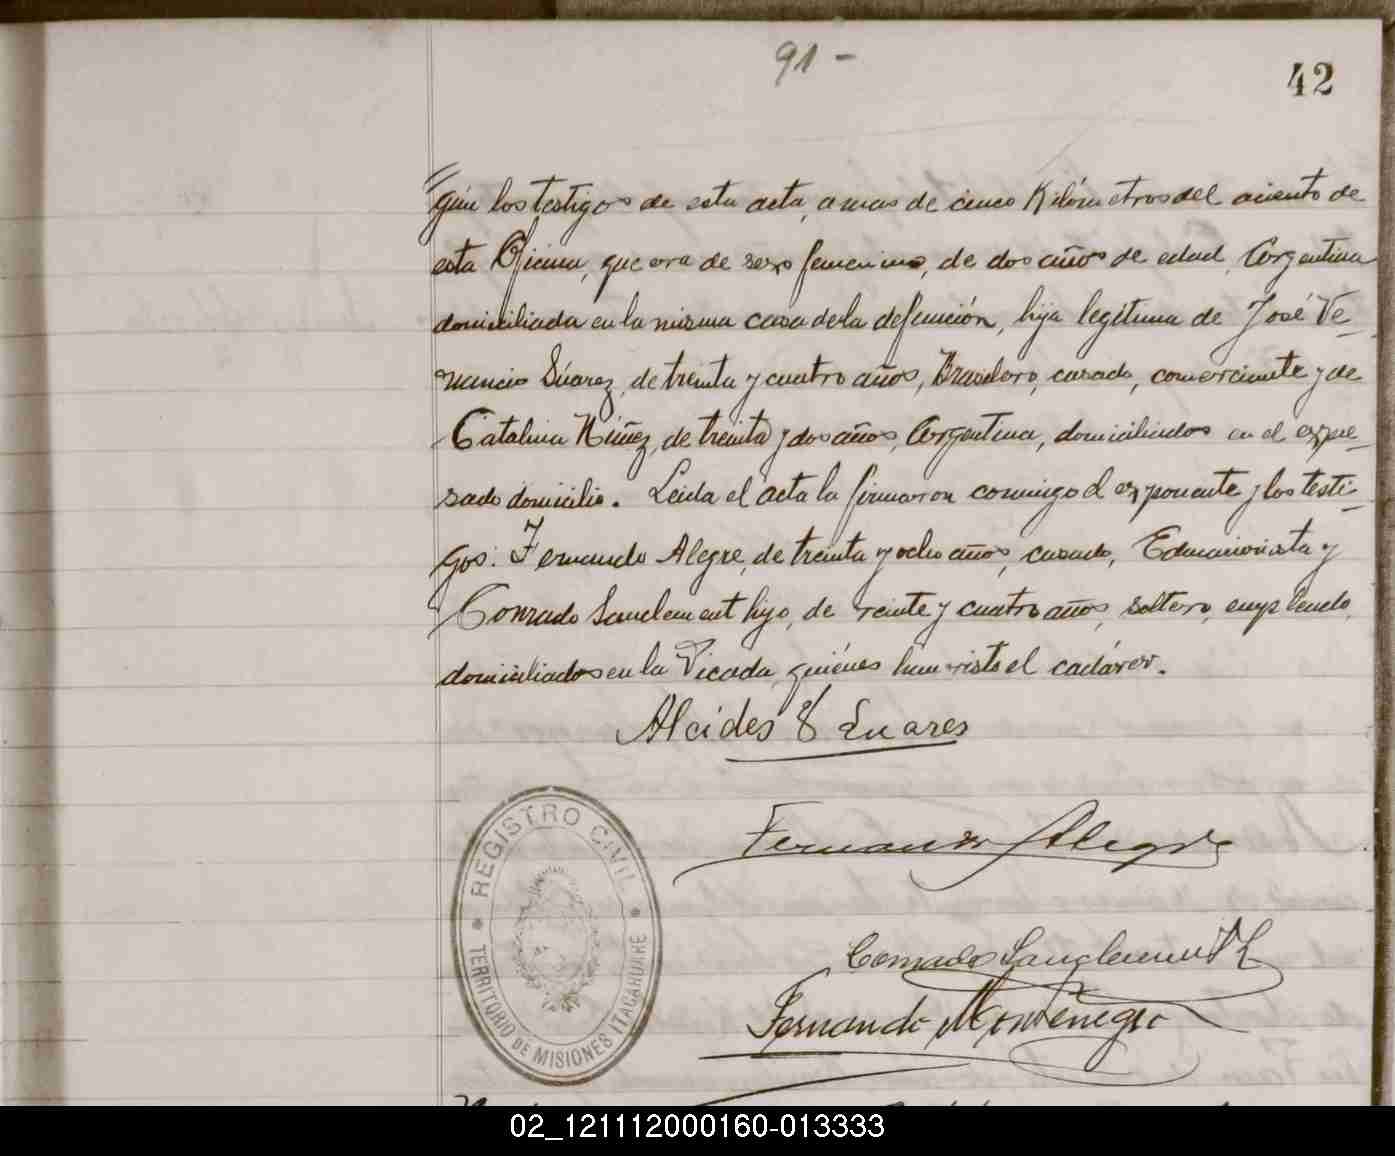 91 -
42
gún los testigos de esta acta, a mas de cinco Kilómetros del aciento de
esta Oficina, que era de sexo femenino, de dos años de edad, Argentina
domiciliada en la misma casa de la defunción, hija legítima de José Ve-
nancio Súarez, de treinta y cuatro años, Brasilero, casado, comerciante y de
Catalina Núñez, de treinta y dos años, Argentina, domiciliados en el expre-
sado domicilio. Leida el acta la firmaron conmigo el exponente y los testi-
gos: Fernando Alegre, de treinta y ocho años, casado, Educacionista y
Conrado Sanclement hijo, de veinte y cuatro años, soltero, empleado,
domiciliados en la Picada, quiénes han visto el cadáver.
Alcides Suares
Fernando Alegre
Conrado Sanclement
Fernando Montenegro
REGISTRO CIVIL
TERRITORIO DE MISIONES ITACARUARE
02_121112000160-013333